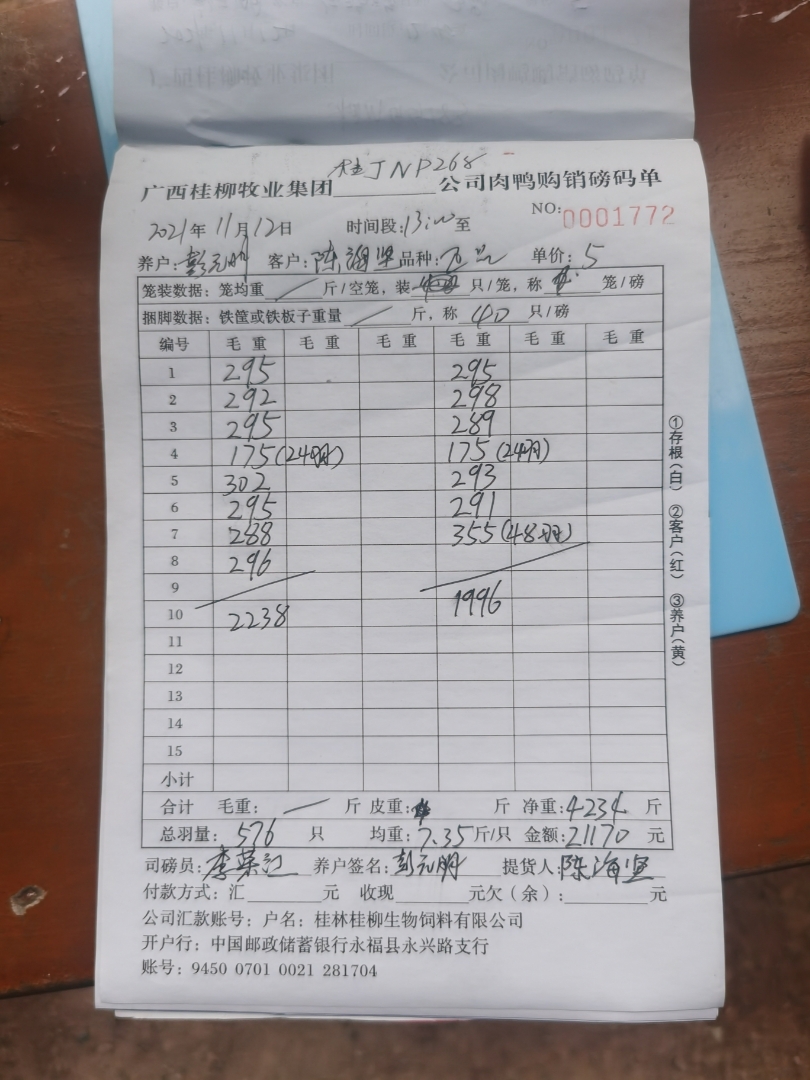 桂JNP268
广西桂柳牧业集团________公司肉鸭购销磅码单
NO:0001772
2021年11月12日 时间段:13:00至
养户:彭元明 客户:陈海坚 品种: 单价:5
笼装数据: 笼均重 / 斤/空笼, 装 只/笼, 称 笼/磅
捆脚数据: 铁筐或铁板子重量 / 斤, 称 40 只/磅
编号 毛重 毛重 毛重 毛重 毛重 毛重
1 295 295
2 292 298
3 295 289
4 175(24羽) 175(24羽)
5 302 293
6 295 291
7 288 355(48羽)
8 296
9
10 2238 1996
11
12
13
14
15
小计
合计 毛重: / 斤 皮重: 斤 净重:4234 斤
总羽量: 576 只 均重:7.35斤/只 金额:21170 元
司磅员:李荣江 养户签名:彭元明 提货人:陈海坚
付款方式: 汇________元 收现________元欠(余):________元
公司汇款账号: 户名: 桂林桂柳生物饲料有限公司
开户行: 中国邮政储蓄银行永福县永兴路支行
账号: 9450 0701 0021 281704
①存根(白) ②客户(红) ③养户(黄)